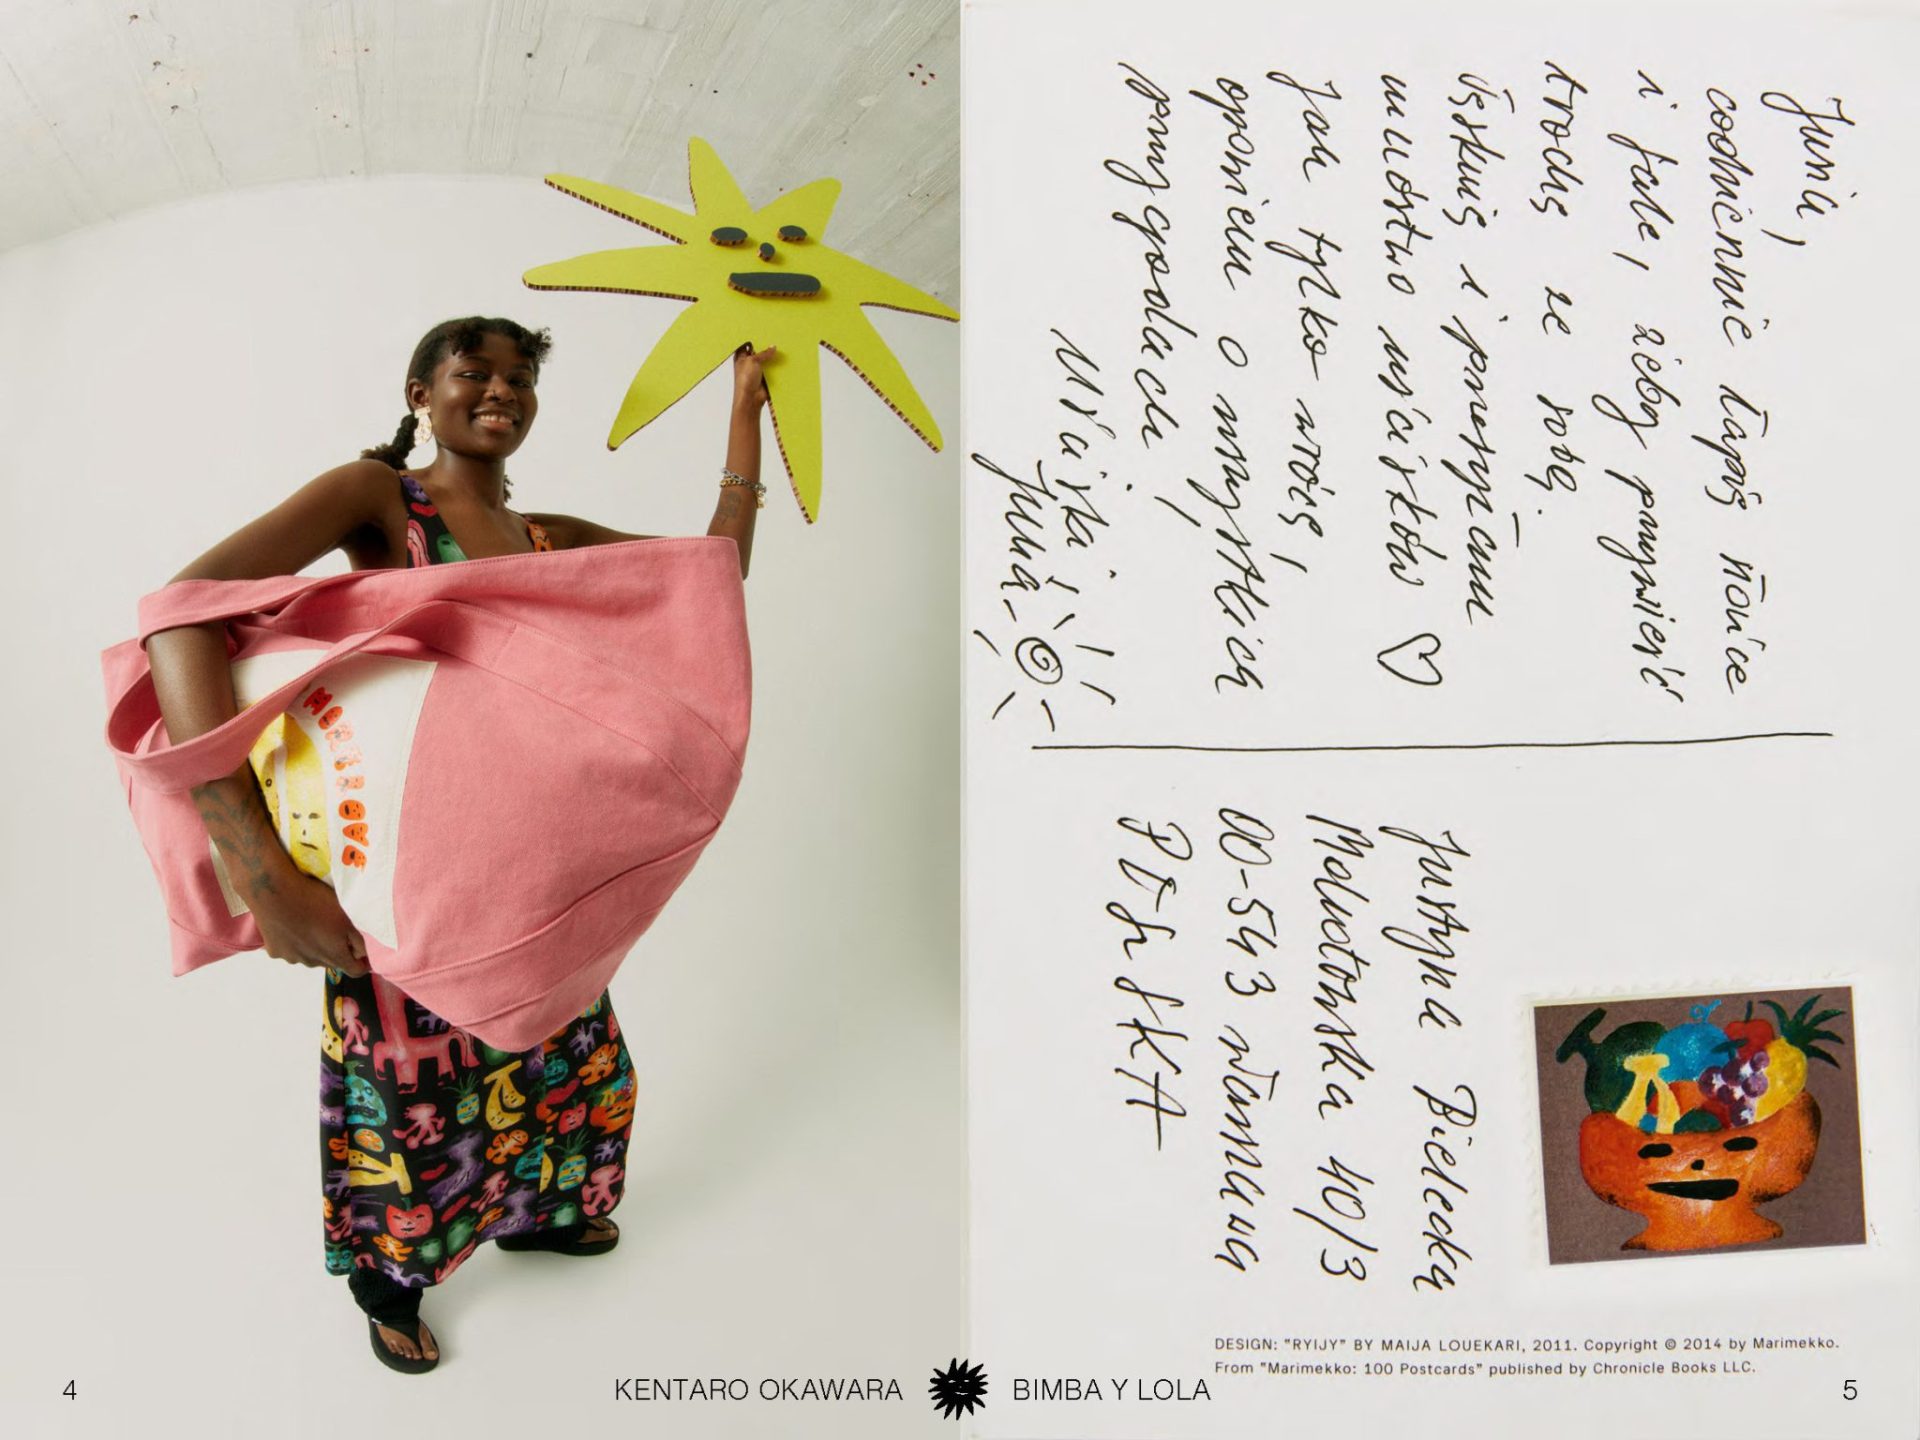 MORE LOVE
Jusia,
codziennie łapię słońce
i fale, żeby przywieźć
trochę ze sobą.
Tęsknię i przesyłam
mnóstwo uścisków ♡
Jak tylko wrócę,
opowiem o wszystkich
przygodach,
Uściski!
Julia
Justyna Bielecka
Mokotowska 40/3
00-543 Warszawa
POLSKA
DESIGN: "RYIJY" BY MAIJA LOUEKARI, 2011. Copyright © 2014 by Marimekko.
From "Marimekko: 100 Postcards" published by Chronicle Books LLC.
4
KENTARO OKAWARA
BIMBA Y LOLA
5